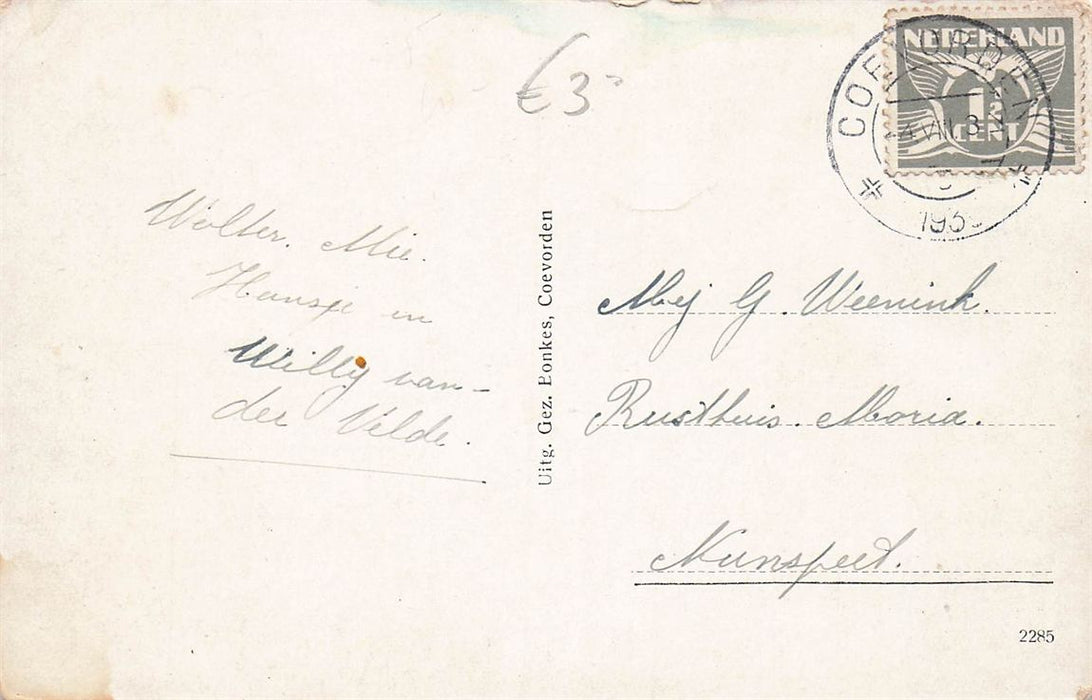 €3-
NEDERLAND
1½
CENT
COEVORDEN
VIII
193
Wolter. Mie.
Hansje en
Willy van-
der Velde.
Uitg. Gez. Eonkes, Coevorden
Mej G. Weenink.
Rusthuis. Moria.
Nunspeet.
2285